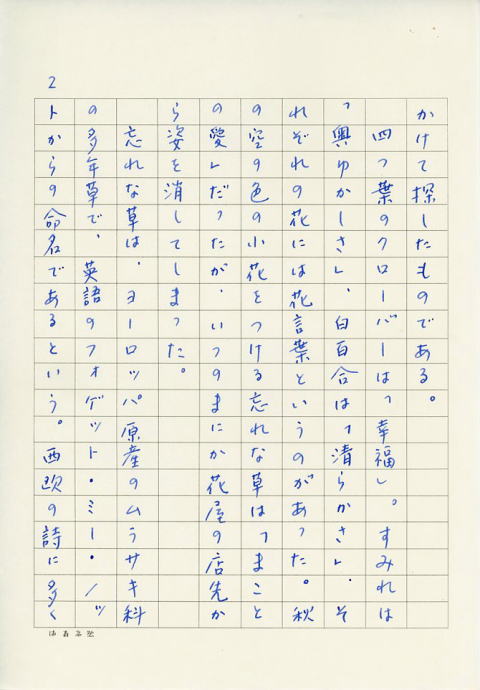 2
かけて探したものである。
四つ葉のクローバーは「幸福」。すみれは
「奥ゆかしさ」、白百合は「清らかさ」、そ
れぞれの花には花言葉というのがあった。秋
の空の色の小花をつける忘れな草は「まこと
の愛」だったが、いつのまにか花屋の店先か
ら姿を消してしまった。
忘れな草は、ヨーロッパ原産のムラサキ科
の多年草で、英語のフォゲット・ミー・ノッ
トからの命名であるという。西欧の詩に多く